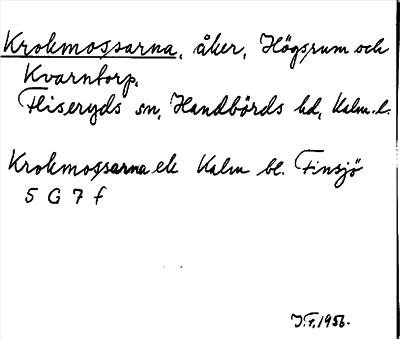 Krokmossarna, åker, Högsrum och
Kvarntorp,
Fliseryds sn, Handbörds hd, Kalm. l.
Krokmossarna ek Kalm bl. Finsjö
5 G 7 f
J.F. 1956.